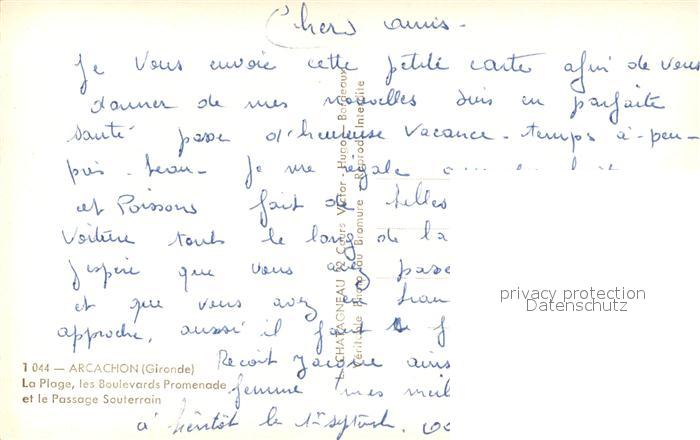 Chers amis -
Je Vous envoie cette petite carte afin de vous
donner de mes nouvelles suis en parfaite
santé passe d'heureuse Vacance - temps à-peu-
près - beau - Je me régale
et Poissons fait de belles
Voiture tout le long de la
J'espère que vous avez passé
et que vous avez eu beau
approche, aussi il faut
Reçoit Jacquie ainsi
femme mes meil
à bientôt le 1er Septemb.
1 044 — ARCACHON (Gironde)
La Plage, les Boulevards Promenade
et le Passage Souterrain
CHATAGNEAU 72 Cours Victor-Hugo - Bordeaux
Véritable Photo au Bromure - Reprod. Interdite
privacy protection
Datenschutz